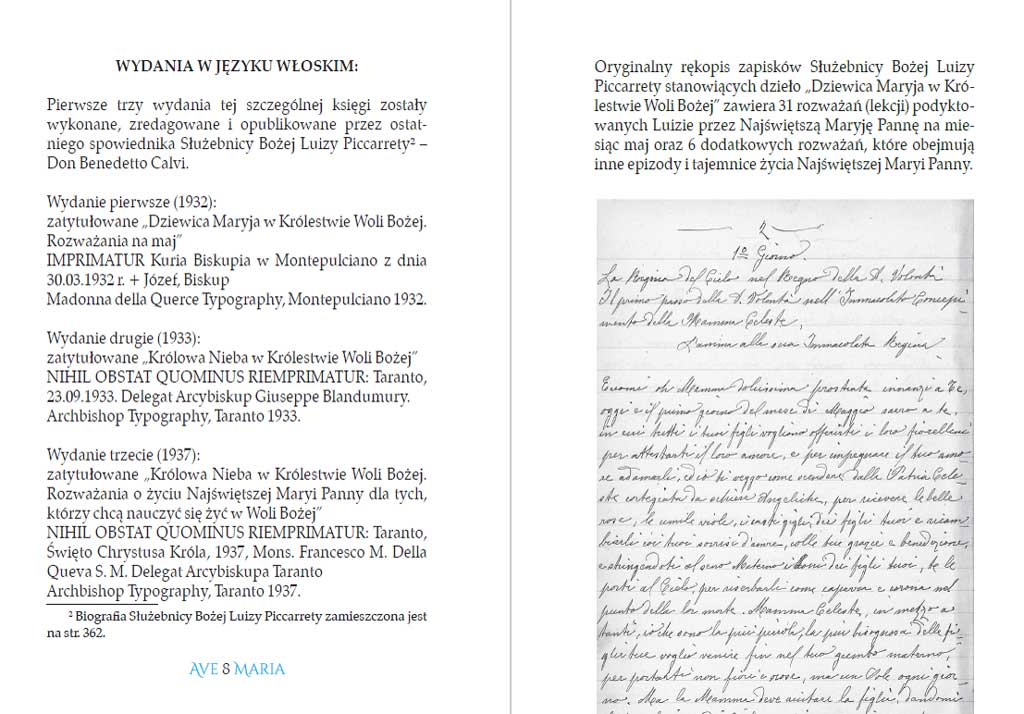 WYDANIA W JĘZYKU WŁOSKIM:
Pierwsze trzy wydania tej szczególnej księgi zostały
wykonane, zredagowane i opublikowane przez ostat-
niego spowiednika Służebnicy Bożej Luizy Piccarrety² –
Don Benedetto Calvi.
Wydanie pierwsze (1932):
zatytułowane „Dziewica Maryja w Królestwie Woli Bożej.
Rozważania na maj”
IMPRIMATUR Kuria Biskupia w Montepulciano z dnia
30.03.1932 r. + Józef, Biskup
Madonna della Querce Typography, Montepulciano 1932.
Wydanie drugie (1933):
zatytułowane „Królowa Nieba w Królestwie Woli Bożej”
NIHIL OBSTAT QUOMINUS RIEMPRIMATUR: Taranto,
23.09.1933. Delegat Arcybiskup Giuseppe Blandumury.
Archbishop Typography, Taranto 1933.
Wydanie trzecie (1937):
zatytułowane „Królowa Nieba w Królestwie Woli Bożej.
Rozważania o życiu Najświętszej Maryi Panny dla tych,
którzy chcą nauczyć się żyć w Woli Bożej”
NIHIL OBSTAT QUOMINUS RIEMPRIMATUR: Taranto,
Święto Chrystusa Króla, 1937, Mons. Francesco M. Della
Queva S. M. Delegat Arcybiskupa Taranto
Archbishop Typography, Taranto 1937.
² Biografia Służebnicy Bożej Luizy Piccarrety zamieszczona jest
na str. 362.
AVE & MARIA
Oryginalny rękopis zapisków Służebnicy Bożej Luizy
Piccarrety stanowiących dzieło „Dziewica Maryja w Kró-
lestwie Woli Bożej” zawiera 31 rozważań (lekcji) podykto-
wanych Luizie przez Najświętszą Maryję Pannę na mie-
siąc maj oraz 6 dodatkowych rozważań, które obejmują
inne epizody i tajemnice życia Najświętszej Maryi Panny.
2
1º Giorno.
La Regina del Cielo nel Regno della D. Volontà
Il primo passo della D. Volontà nell' Immacolato Concepi
mento della Mamma Celeste.
L'anima alla sua Immacolata Regina
Eccomi oh Mamma dolcissima prostrata innanzi a Te,
oggi è il primo giorno del mese di Maggio sacro a te,
in cui tutti i tuoi figli vogliono offerirti i loro fiorellini
per attestarti il loro amore, e per impegnare il tuo amo
re ad amarli, ed io ti veggo come scendere dalla Patria Cele
ste corteggiata da schiere Angeliche, per ricevere le belle
rose, le umile viole, i casti gigli, dei figli tuoi e ricam
biarli coi tuoi sorrisi d'amore, colle tue grazie e benedizione,
e stringendoti al seno Materno i doni dei figli tuoi, te le
porti al Cielo, per riserbarli come caparre e corona nel
punto della lor morte. Mamma Celeste, in mezzo a
tanti, io che sono la più piccola, la più bisognosa delle fi
glie tue voglio venire fin nel tuo grembo materno,
per portarti non fiori e rose, ma un Sole ogni gior
no. Ma la Mamma deve aiutare la figlia, dandomi